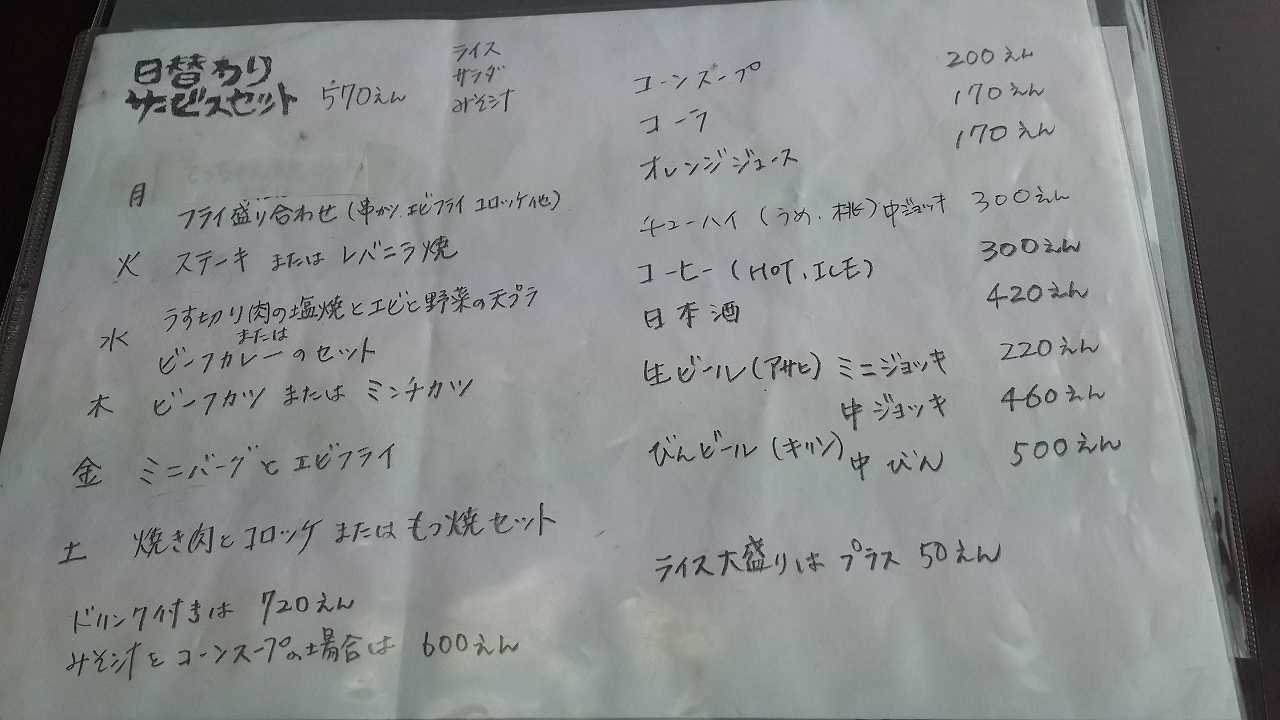 日替わり
サービスセット 570えん
ライス
サラダ
みそ汁
月 フライ盛り合わせ(串カツ、エビフライ コロッケ他)
火 ステーキ または レバニラ焼
水 うす切り肉の塩焼とエビと野菜の天プラ
または
ビーフカレーのセット
木 ビーフカツ または ミンチカツ
金 ミニバーグとエビフライ
土 焼き肉とコロッケ または もつ焼セット
ドリンク付きは 720えん
みそ汁とコーンスープの場合は 600えん
コーンスープ 200えん
コーラ 170えん
オレンジジュース 170えん
チューハイ(うめ、桃)中ジョッキ 300えん
コーヒー(HOT、ICE) 300えん
日本酒 420えん
生ビール(アサヒ) ミニジョッキ 220えん
中ジョッキ 460えん
びんビール(キリン)中びん 500えん
ライス大盛りは プラス 50えん